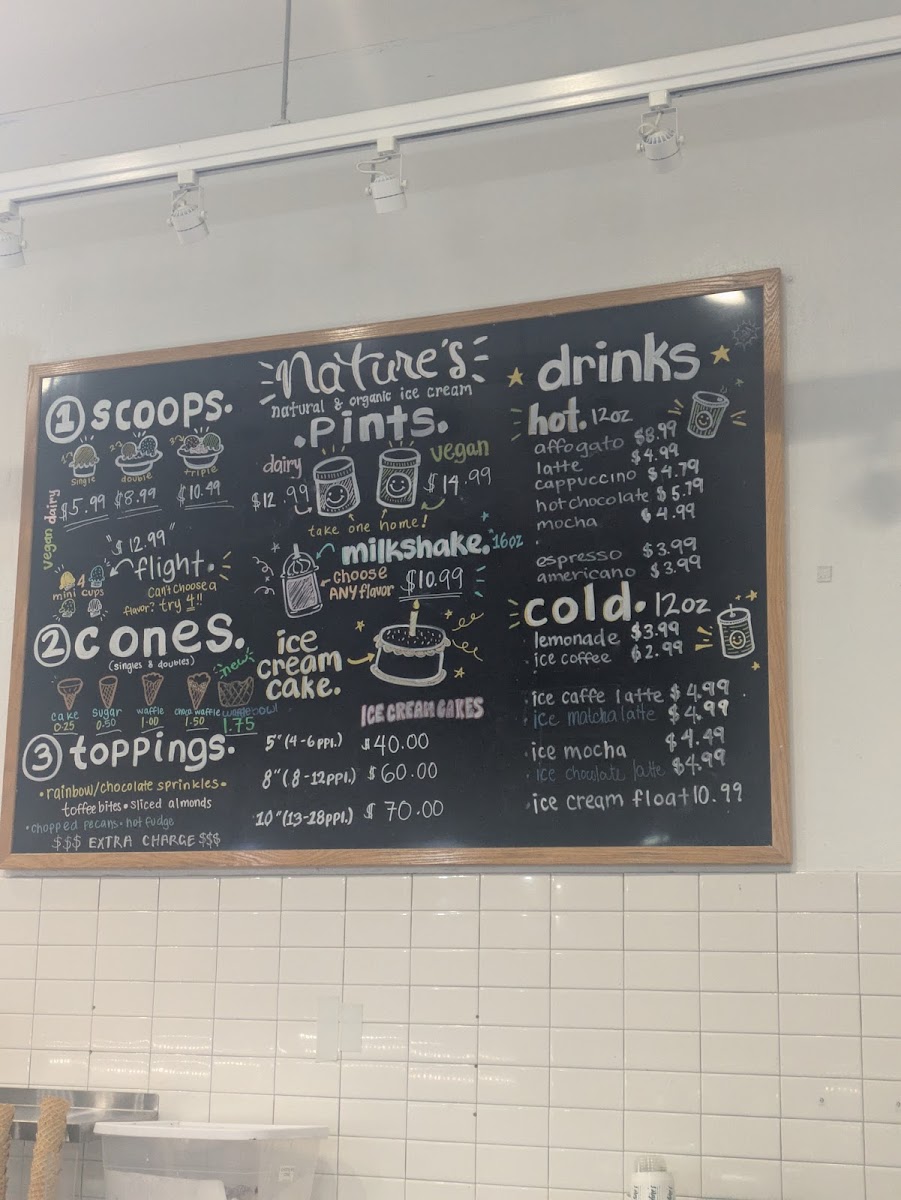 nature's
natural & organic ice cream
① scoops.
single double triple
dairy
vegan
$5.99 $8.99 $10.49
"$12.99"
flight.
4
mini cups
can't choose a
flavor? try 4!!
② cones.
(singles & doubles)
new
cake sugar waffle choco waffle wafflebowl
0.25 0.50 1.00 1.50 1.75
③ toppings.
• rainbow/chocolate sprinkles •
toffee bites • sliced almonds
• chopped pecans • hot fudge
$$$ EXTRA CHARGE $$$
.pints.
dairy vegan
$12.99 $14.99
take one home!
milkshake. 16oz
choose
ANY flavor $10.99
ice
cream
cake.
ICE CREAM CAKES
5" (4-6 ppl.) $40.00
8" (8-12ppl.) $60.00
10" (13-28ppl.) $70.00
drinks
hot. 12oz
affogato $8.99
latte $4.99
cappuccino $4.79
hot chocolate $5.79
mocha $4.99
espresso $3.99
americano $3.99
cold. 12oz
lemonade $3.99
• ice coffee $2.99
• ice caffe latte $4.99
• ice matcha latte $4.99
• ice mocha $4.49
• ice chocolate latte $4.99
• ice cream float 10.99